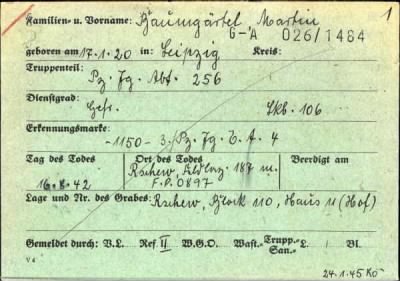 1
Familien- u. Vorname: Baumgärtel, Martin
G-A 026/1484
geboren am 17.1.20 in: Leipzig Kreis:
Truppenteil:
Pz. Jg. Abt. 256
Dienstgrad:
Gefr. Skb. 106
Erkennungsmarke:
-1150- 3./Pz. Jg. E. A. 4
Tag des Todes Ort des Todes Beerdigt am
16.8.42 Rschew, Feldlaz. 187 m.
F.P. 0897
Lage und Nr. des Grabes: Rschew, Block 110, Haus 11 (Hof)
Gemeldet durch: V.L. Ref II W.G.O. Wast.- Trupp.- L. Bl.
San.-
V 4
24.1.45 Kö